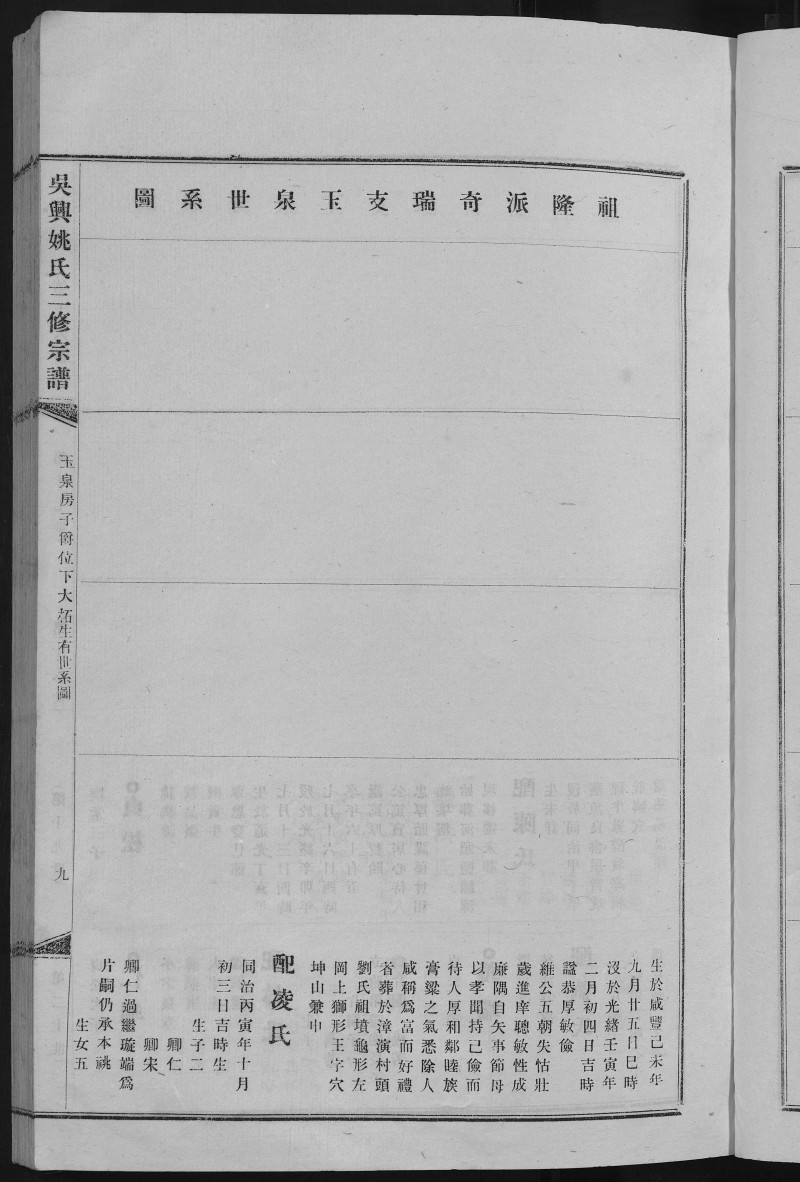 祖隆派奇瑞支玉泉世系圖
生於咸豐己未年
九月廿五日巳時
沒於光緒壬寅年
二月初四日吉時
諡恭厚敏儉
維公五朝失怙壯
歲進庠聰敏性成
廉隅自矢事節母
以孝聞持己儉而
待人厚和鄰睦族
膏粱之氣悉除人
咸稱為富而好禮
者葬於漳演村頭
劉氏祖墳龜形左
岡上獅形王字穴
坤山兼申
配凌氏
同治丙寅年十月
初三日吉時生
生子二
卿仁
卿宋
卿仁過繼璇端為
片嗣仍承本祧
生女五
吳興姚氏三修宗譜
玉泉房子爵位下大祏生有世系圖
九